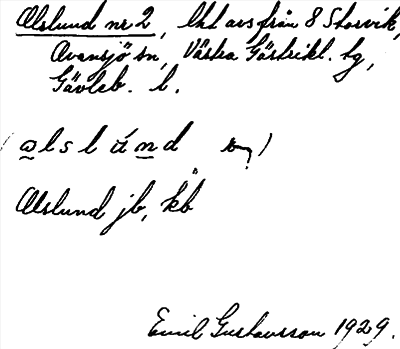 Alslund nr 2, lht avs från 8 Storvik,
Ovansjö sn, Västra Gästrikl. tg,
Gävleb. l.
(alslúnd)
Alslund jb, kb
Emil Gustavsson 1929.